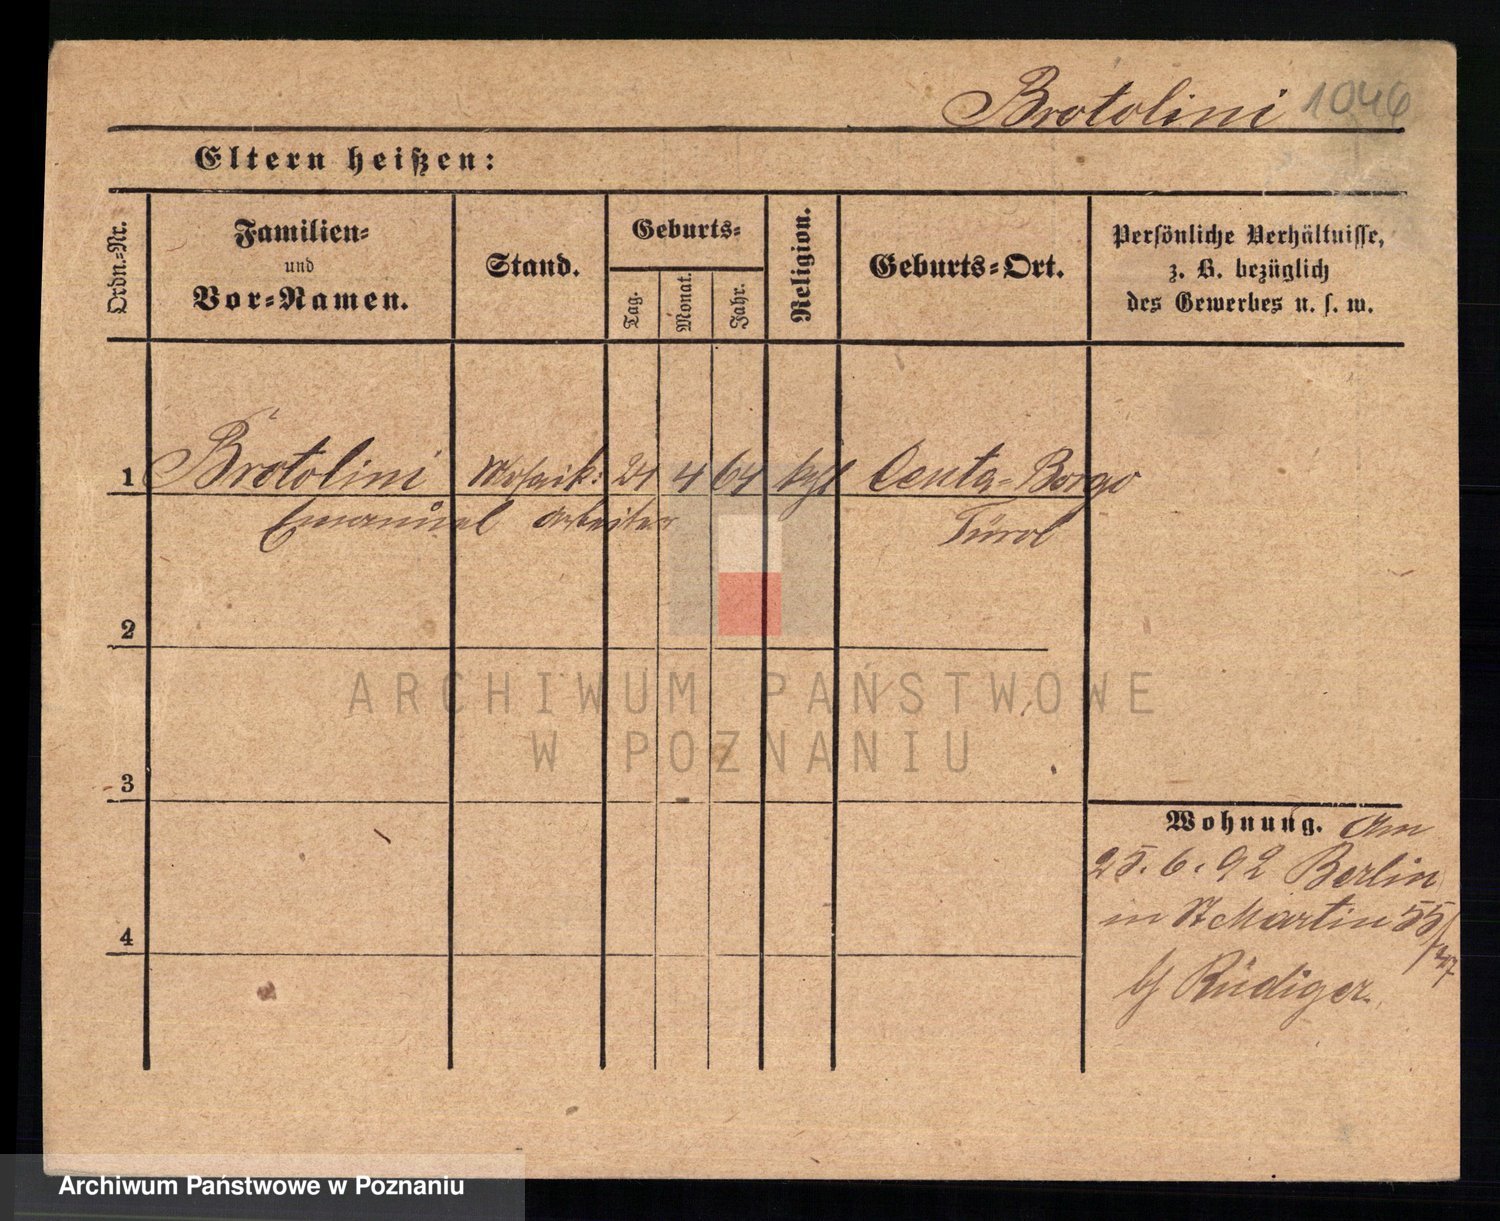 Brotolini 1046
Eltern heißen:
Ordn.-Nr.
Familien-
und
Vor-Namen.
Stand.
Geburts-
Tag.
Monat.
Jahr.
Religion.
Geburts-Ort.
Persönliche Verhältnisse,
z. B. bezüglich
des Gewerbes u. s. w.
1 Brotolini Mosaik: 24 4 64 kth Centa-Borgo
Emanuel Arbeiter Türol
2
3
4
Wohnung. Am
25.6.92 Berlin
in St Martin 55/
b/ Rüdiger.
ARCHIWUM PAŃSTWOWE
W POZNANIU
Archiwum Państwowe w Poznaniu